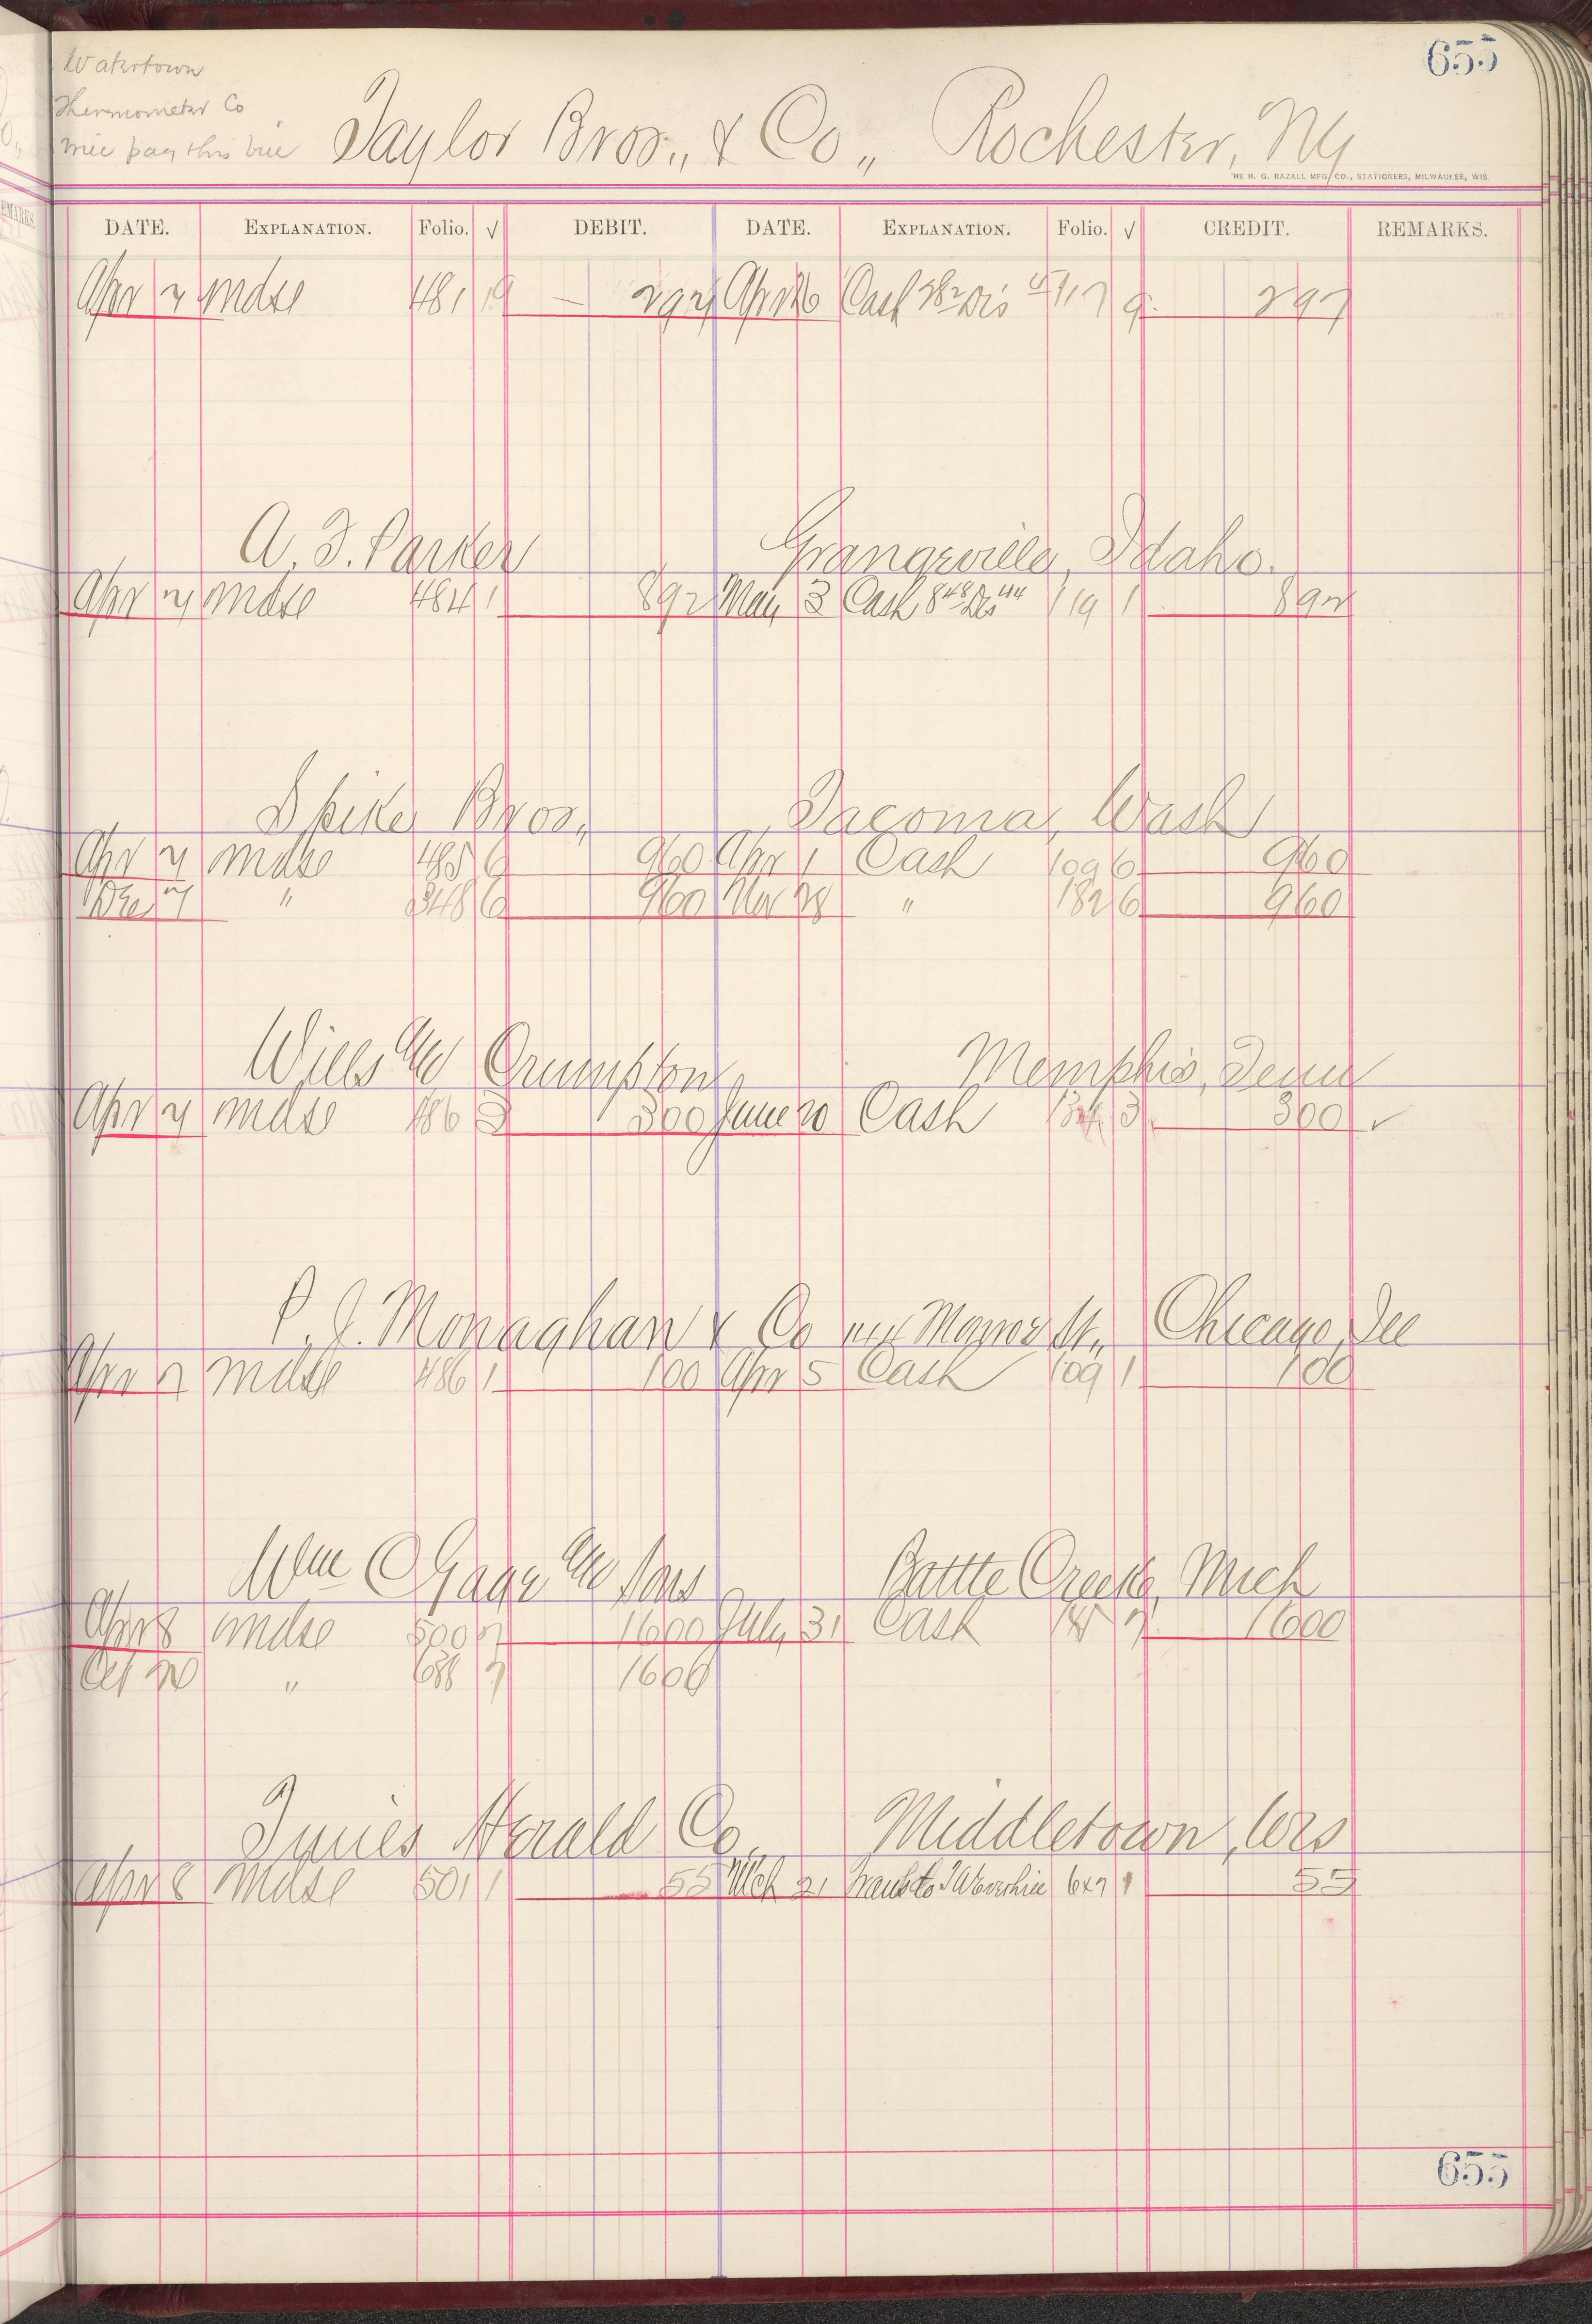 655
Watertown
Thermometer Co
will pay this bill
Taylor Bros., & Co., Rochester, NY
THE H. G. RAZALL MFG. CO., STATIONERS, MILWAUKEE, WIS.
DATE. EXPLANATION. Folio. √ DEBIT. DATE. EXPLANATION. Folio. √ CREDIT. REMARKS.
Apr mdse 481 9 — 297 Apr Cash Dis 117 9 297
A. F. Parker Grangeville, Idaho.
Apr mdse 484 1 892 May 3 Cash 848 Dis 44 119 1 892
Spike Bros., Tacoma, Wash
Apr mdse 485 6 960 Apr 1 Cash 109 6 960
Dec " 348 6 960 " 182 6 960
Wills & Crumpton, Memphis, Tenn
Apr mdse 486 3 300 June 20 Cash 134 3 300 ✓
P. J. Monaghan & Co Monroe St., Chicago, Ill
Apr mdse 486 1 100 Apr 5 Cash 109 1 100
Wm C Gage & Sons Battle Creek, Mich
Apr 8 mdse 500 7 1600 July 31 Cash 7 1600
Oct 20 " 686 7 1600
Times Herald Co Middletown,
Apr 8 mdse 501 1 55 Mch 21 Trans to 1 55
655